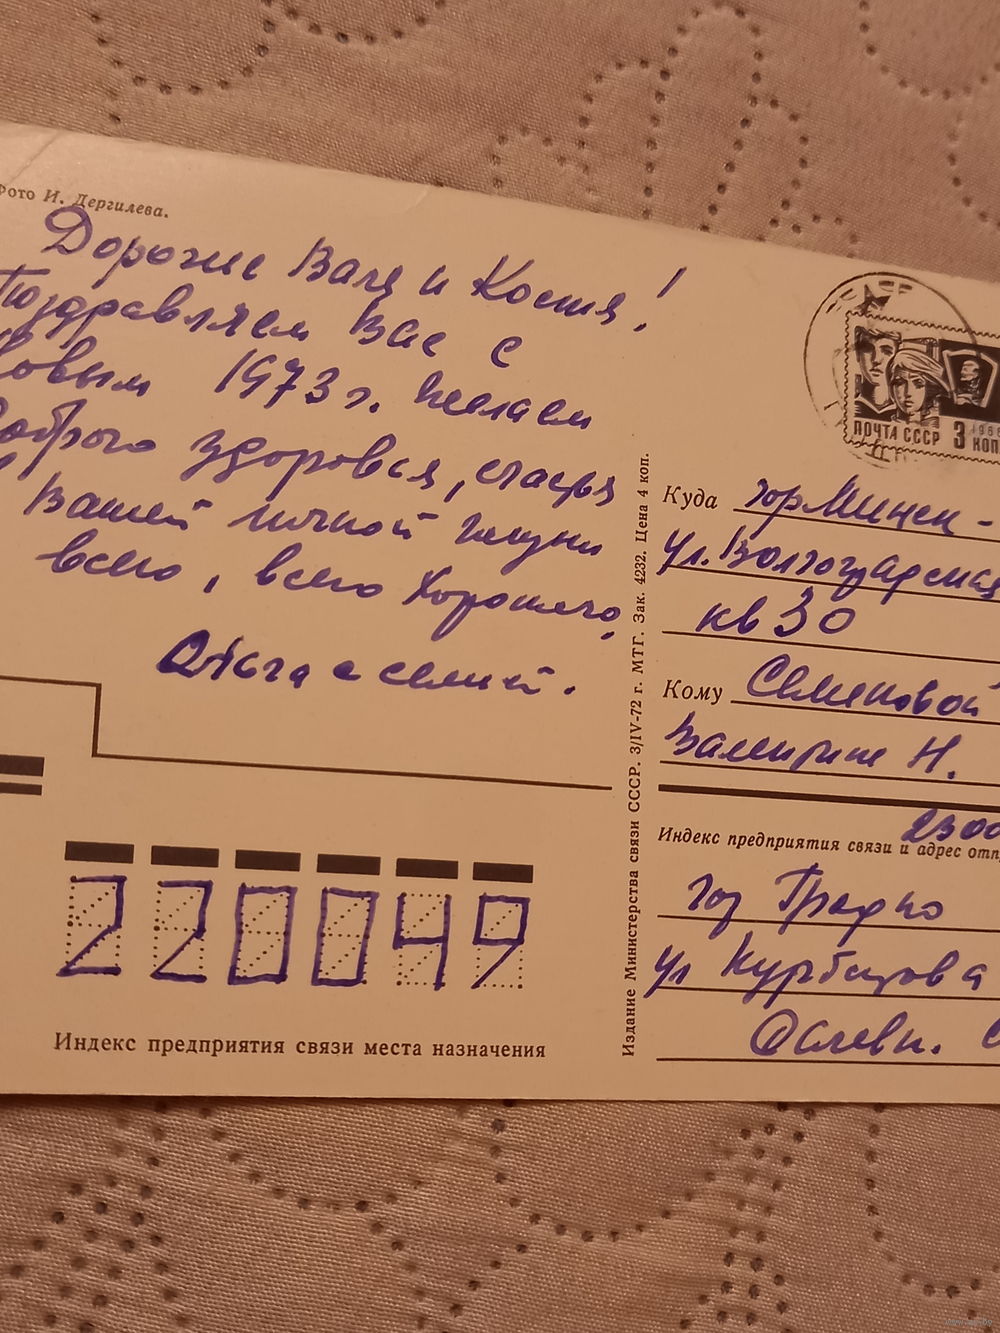 Фото И. Дергилева.
Дорогие Валя и Костя!
Поздравляем Вас с
Новым 1973 г. Желаем
Доброго здоровья, счастья
в Вашей личной жизни
всего, всего хорошего,
Ольга с семьей.
ПОЧТА СССР 3 КОП
1966
Издание Министерства связи СССР. 3/IV-72 г. МТГ. Зак. 4232. Цена 4 коп.
Куда гор Минск -
ул. Волгоградская
кв 30
Кому Семеновой
Валентине Н.
2300
Индекс предприятия связи и адрес отп
гор Гродно
ул Курбатова
220049
Индекс предприятия связи места назначения